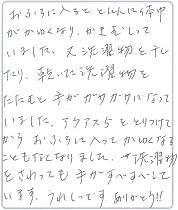 おふろに入ると とたんに体中
がかゆくなり、がまんして
いました。又洗濯物を干し
たり、乾いた洗濯物を
たたむと手がガサガサになって
いました。アクアス5をとりつけて
から おふろに入ってかゆくなる
こともなくなりました。洗濯物
をさわっても手がすべすべして
います。うれしいです ありがとう!!